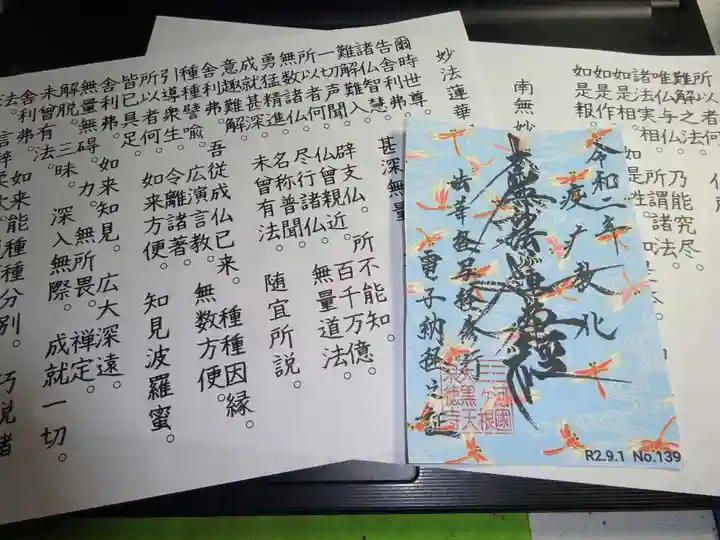 所以者何
難解之法
唯仏与仏
乃能究尽。
諸法実相
所謂諸法
如是相
如是作
如是報
南無妙
妙法蓮華
爾時世尊
告舎利弗
諸仏智慧
甚深無量
難解難入
一切声聞
辟支仏
所不能知。
所以者何
仏曾親近
百千万億
無数諸仏
尽行諸仏
無量道法
勇猛精進
名称普聞
成就甚深
未曾有法
随宜所説
意趣難解
舎利弗
吾従成仏已来。
種種因縁。
種種譬喩
広演言教
無数方便。
引導衆生
令離諸著
所以者何
如来方便
知見波羅蜜。
皆已具足
舎利弗
如来知見
広大深遠。
無量無碍
力 無所畏。
禅定。
解脱三昧
深入無際。
成就一切。
未曾有法
舎利弗
如来能種種分別。
巧説諸
法
言辞柔
令和二年
疫病教化
南無妙法蓮華経
法華経写経修行
電子納経之証
三河國
三ヶ根
太黒天
R2.9.1 No.139